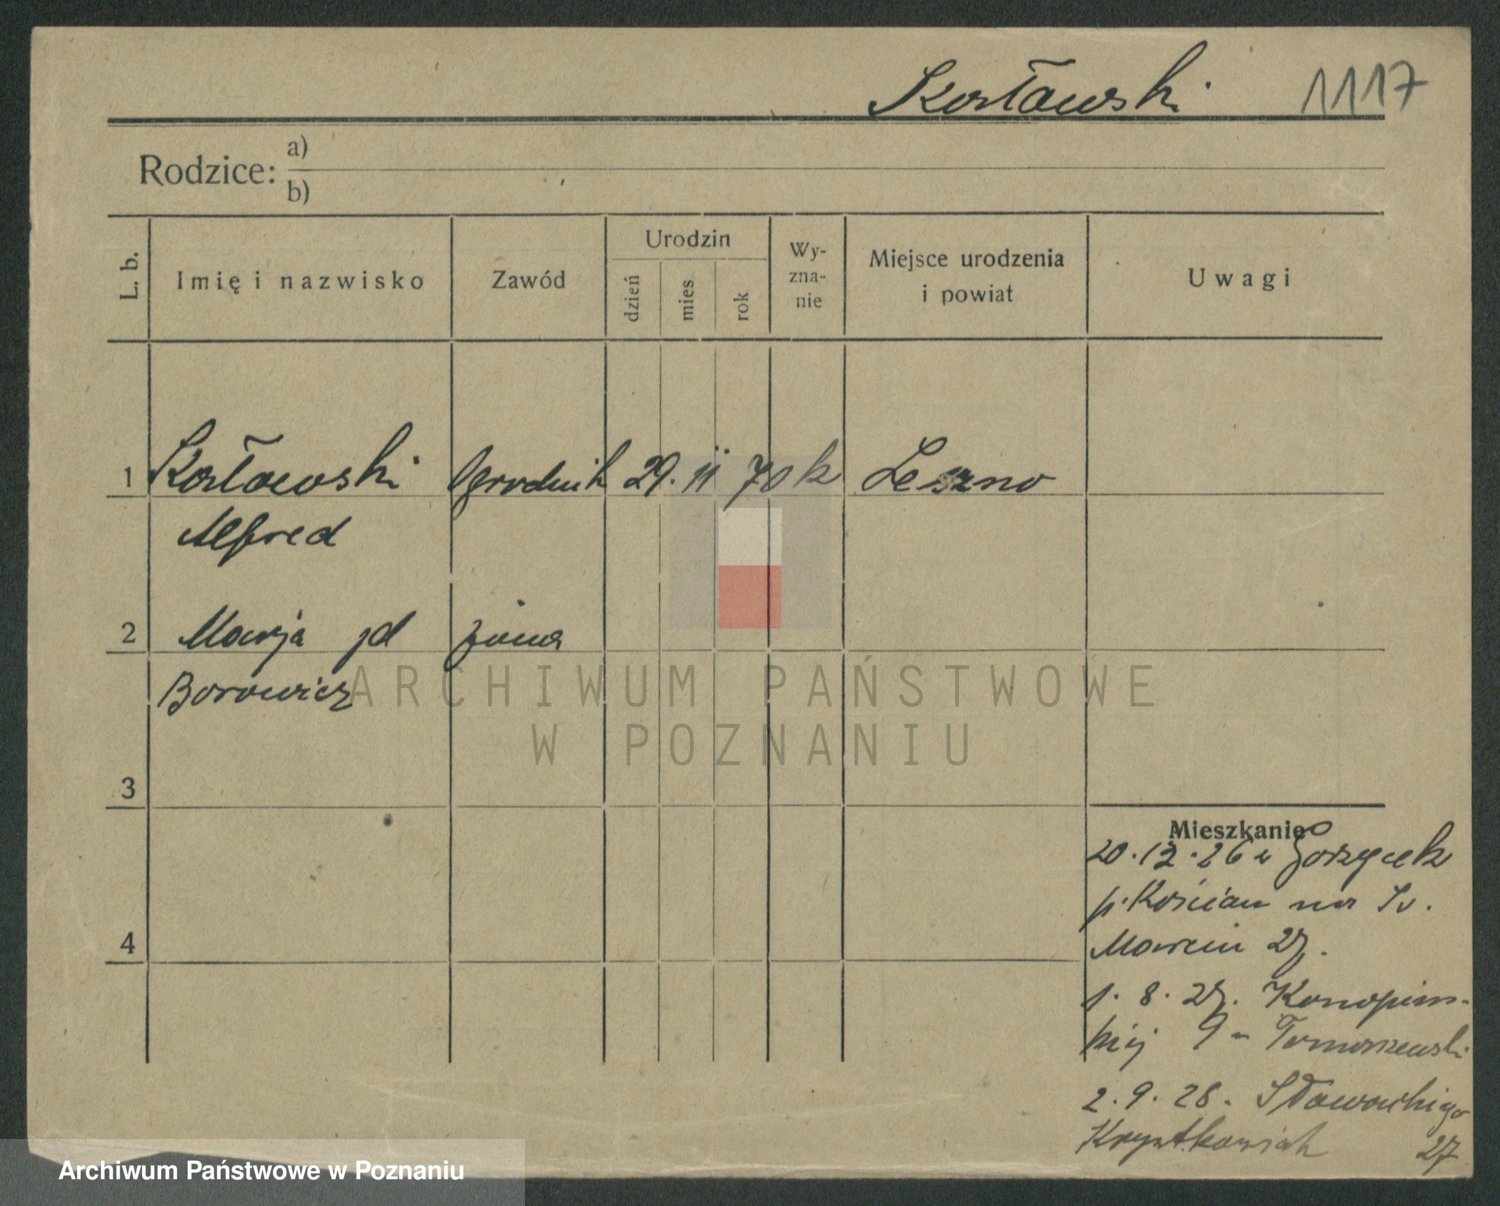 Kozłowski 1117
Rodzice: a)
b)
L. b. Imię i nazwisko Zawód Urodzin dzień mies rok Wy-zna-nie Miejsce urodzenia i powiat Uwagi
1 Kozłowski ogrodnik 29. 11 70 k Leszno
Alfred
2 Marja żona
Borowicz
3
4
Mieszkanie
20.12.26 z
p. Kościan na Św.
Marcin 27.
1. 8. 27. Konopnic-
kiej 9 - Tomaszewski
2. 9. 28. Słowackiego
Krystkowiak 27
ARCHIWUM PAŃSTWOWE
W POZNANIU
Archiwum Państwowe w Poznaniu